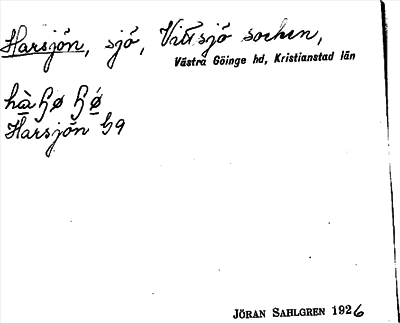 Harsjön, sjö, Vittsjö socken,
Västra Göinge hd, Kristianstad län
Harsjön G9
JÖRAN SAHLGREN 1926